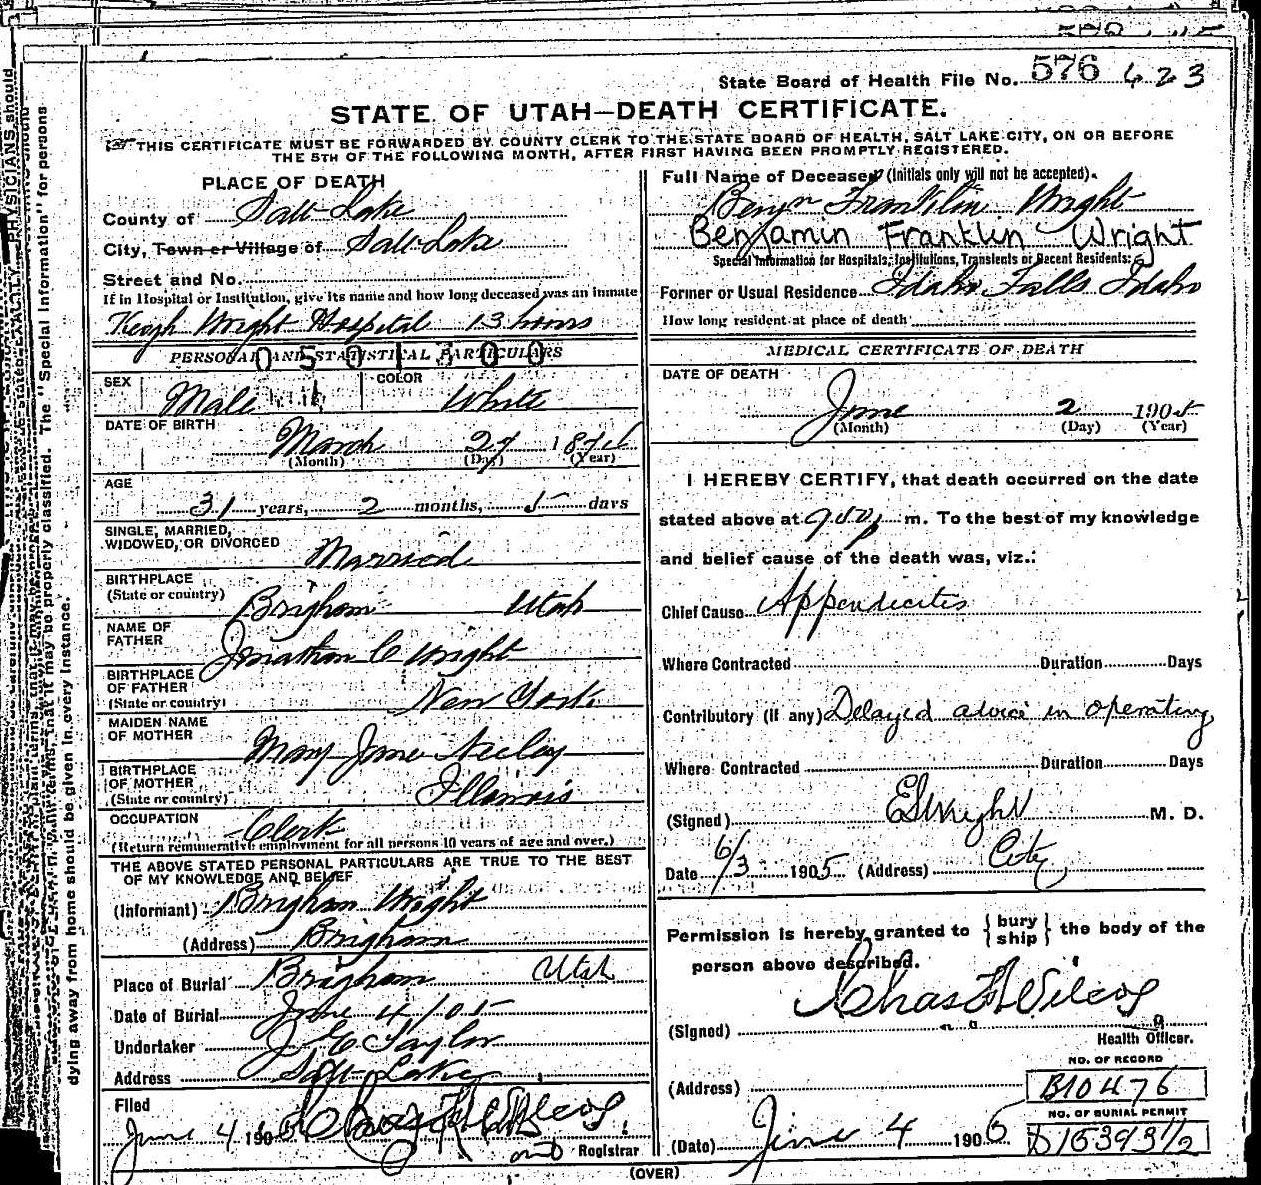 State Board of Health File No. 576 623
STATE OF UTAH—DEATH CERTIFICATE.
THIS CERTIFICATE MUST BE FORWARDED BY COUNTY CLERK TO THE STATE BOARD OF HEALTH, SALT LAKE CITY, ON OR BEFORE
THE 5TH OF THE FOLLOWING MONTH, AFTER FIRST HAVING BEEN PROMPTLY REGISTERED.
PLACE OF DEATH
County of Salt Lake
City, Town or Village of Salt Lake
Street and No.
If in Hospital or Institution, give its name and how long deceased was an inmate
Keogh Wright Hospital 13 hours
PERSONAL AND STATISTICAL PARTICULARS
0501300
SEX Male COLOR White
DATE OF BIRTH
March 27 1874
(Month) (Day) (Year)
AGE
31 years, 2 months, 5 days
SINGLE, MARRIED,
WIDOWED, OR DIVORCED Married
BIRTHPLACE
(State or country) Brigham Utah
NAME OF
FATHER Jonathan C Wright
BIRTHPLACE
OF FATHER
(State or country) New York
MAIDEN NAME
OF MOTHER Mary Jane Neeley
BIRTHPLACE
OF MOTHER
(State or country) Illinois
OCCUPATION Clerk
(Return remunerative employment for all persons 10 years of age and over.)
THE ABOVE STATED PERSONAL PARTICULARS ARE TRUE TO THE BEST
OF MY KNOWLEDGE AND BELIEF
(Informant) Brigham Wright
(Address) Brigham
Place of Burial Brigham Utah
Date of Burial June 4/05
Undertaker J C Taylor
Address Salt Lake
Filed
June 4 1905 Chas F Wilcox
and Registrar
Full Name of Deceased (Initials only will not be accepted).
Benjn Franklin Wright
Benjamin Franklin Wright
Special Information for Hospitals, Institutions, Transients or Recent Residents:
Former or Usual Residence Idaho Falls Idaho
How long resident at place of death
MEDICAL CERTIFICATE OF DEATH
DATE OF DEATH
June 2 1905
(Month) (Day) (Year)
I HEREBY CERTIFY, that death occurred on the date
stated above at 9.00 p m. To the best of my knowledge
and belief cause of the death was, viz.:
Chief Cause Appendicites
Where Contracted Duration Days
Contributory (if any) Delayed advice in operating
Where Contracted Duration Days
(Signed) E S Wright M. D.
Date 6/3 1905 (Address) City
Permission is hereby granted to { bury ship } the body of the
person above described.
(Signed) Chas F Wilcox
Health Officer.
(Address)
NO. OF RECORD
B10476
NO. OF BURIAL PERMIT
D15393 1/2
(Date) June 4 1905
(OVER)
PHYSICIANS should
The "Special Information" for persons
that it may be properly classified.
dying away from home should be given in every instance.